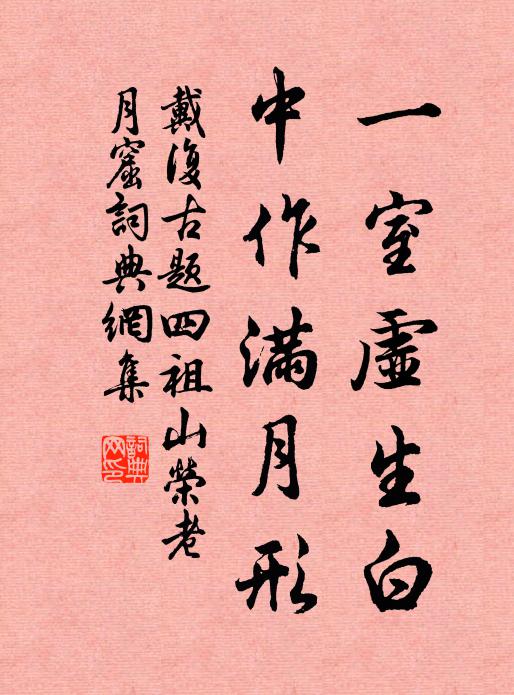 一室虛生白
中作滿月形
戴復古題四祖山榮老
月窟詞典網集
詞典网印